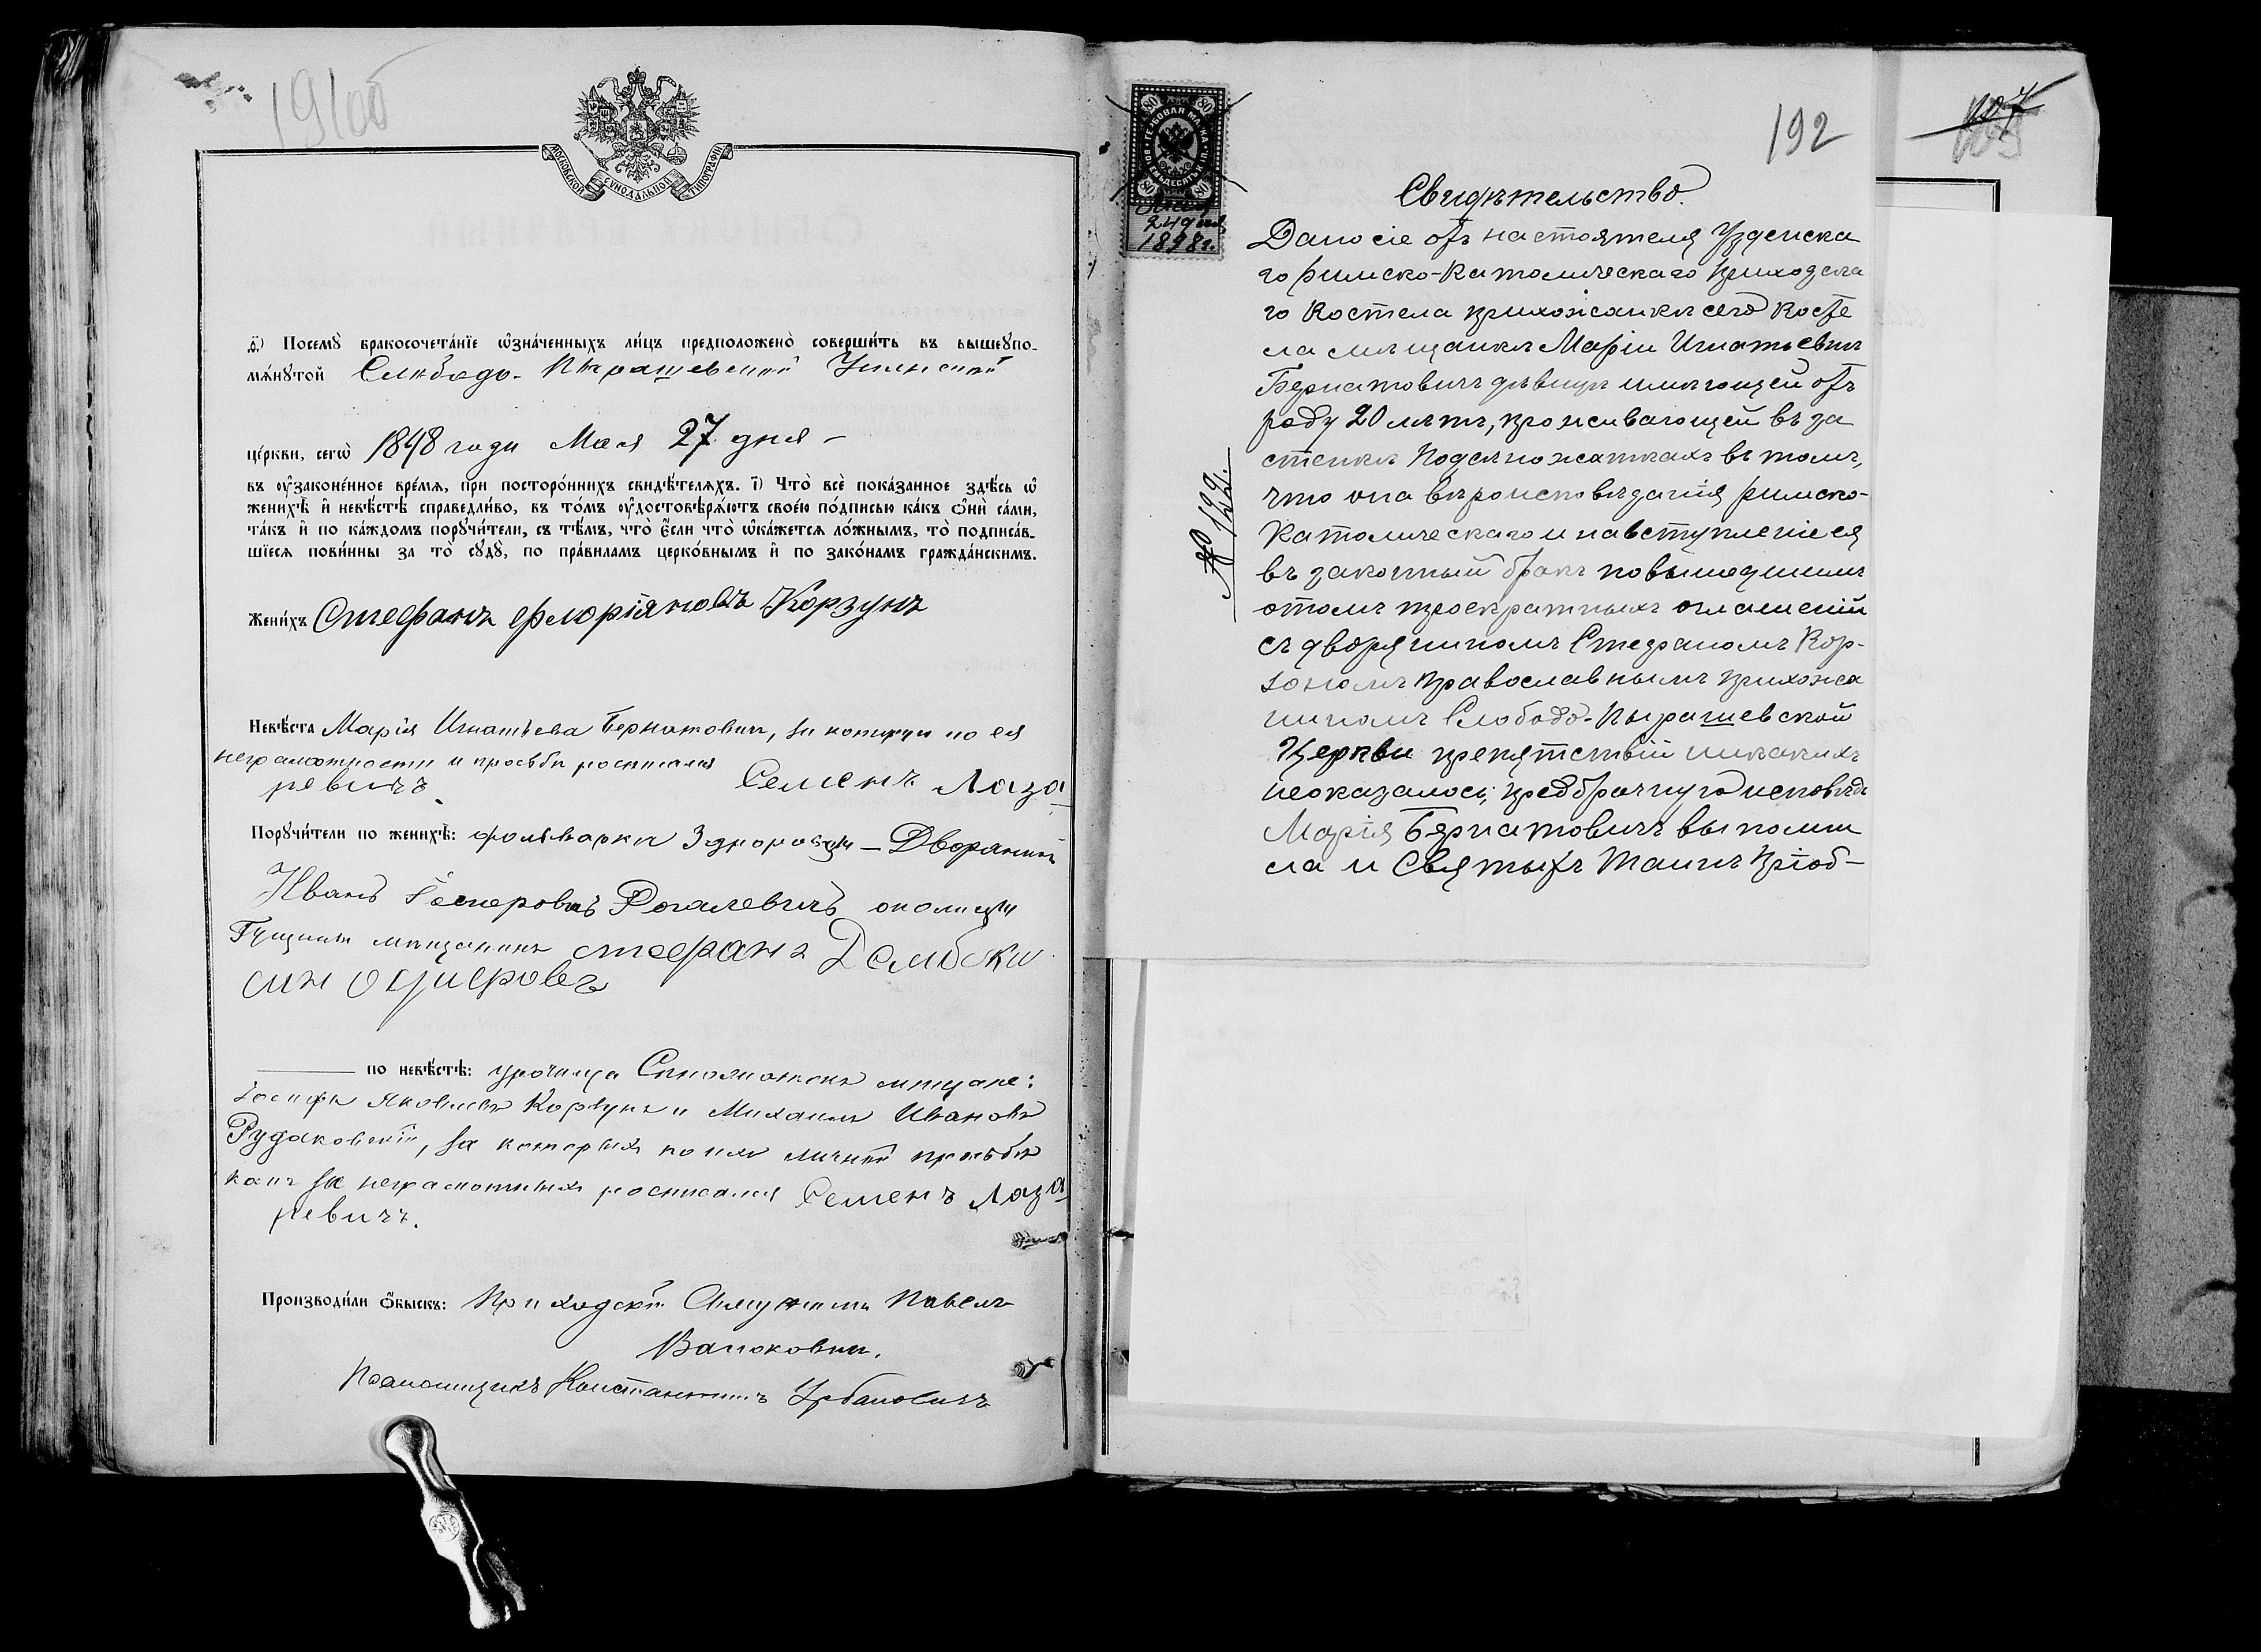 191об
МОСКОВСКОЙ СѴНОДАЛЬНОЙ ТИПОГРАФІИ
Посемꙋ̀ бракосочета́нїе ѡ҆зна́ченныхъ ли́цъ предположено̀ соверши́ть въ вышеꙋпо-
мѧ́нꙋтой Слободо-Пырашевской Успенской
це́ркви, сегѡ̀ 1898 года Мая 27 дня –
въ ᲂу҆законе́нное вре́мѧ, при посторо́ннихъ свидѣ́телѧхъ. і҃) Что̀ всѐ пока́занное здѣ́сь ѡ҆
женихѣ̀ и҆ невѣ́стѣ справедли́во, въ то́мъ ᲂу҆достовѣрѧ́ютъ свое́ю по́дписью ка́къ ѻ҆нѝ са́ми,
та́къ и҆ по ка́ждомъ порꙋчи́тели, съ тѣ́мъ, что̀ є҆́сли что̀ ѡ҆ка́жетсѧ ло́жнымъ, то̀ подписа́в-
шїесѧ пови́нны за то̀ сꙋдꙋ̀, по пра́виламъ церко́внымъ и҆ по зако́намъ гражда́нскимъ.
Жени́хъ Стефанъ Флоріяновъ Корзунъ
Невѣ́ста Марія Игнатьева Бернатовичъ, за которую по ея
неграмотности и просьбѣ росписался Семенъ Лаза-
ревичъ.
Порꙋчи́тели по женихѣ̀: фольварка – Дворянинъ
Иванъ Рогалевичъ околицы
мѣщанинъ стефанъ Домбски
син
по невѣ́стѣ: урочища мѣщане:
Іосифъ Яковлевъ Корзунъ и Михаилъ Ивановъ
Рудаковскій, за которыхъ по ихъ личной просьбѣ
какъ за неграмотныхъ росписался Семенъ Лаза-
ревичъ.
Производи́ли ѻ҆́быскъ: Приходскій Священникъ Павелъ
Псаломщикъ Константинъ Урбановичъ
80 80
ГЕРБОВАЯ МАРКА ВОСЕМЬДЕСЯТЪ КОП.
80 80
24 дня
1898 г.
192
№ 122.
Свидѣтельство.
Дано сіе отъ настоятеля Узденска
го Римско-Католическаго приходска
го Костела прихожанкѣ сего Косте
ла мѣщанкѣ Маріи Игнатьевнѣ
Бернатовичъ дѣвицѣ имѣющей отъ
роду 20 лѣтъ, проживающей въ за
стенкѣ въ томъ,
что она вѣроисповѣданія римско-
Католическаго и на вступленіе ея
въ законный бракъ по вышедшимъ
о томъ троекратныхъ оглашеній
съ дворяниномъ Стефаномъ Кор-
зономъ православнымъ прихожа
ниномъ Слободо-Пырашевской
Церкви препятствій никакихъ
неоказалось, предбрачную исповѣдь
Марія Бернатовичъ выполни
ла и Святыхъ Таинъ пріоб-